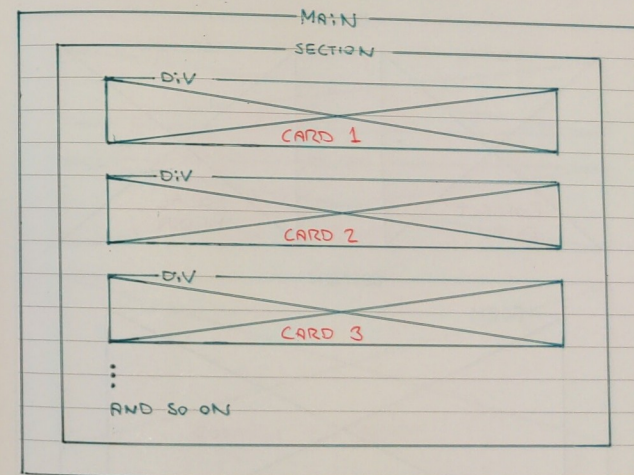 MAIN
SECTION
DIV
CARD 1
DIV
CARD 2
DIV
CARD 3
AND SO ON